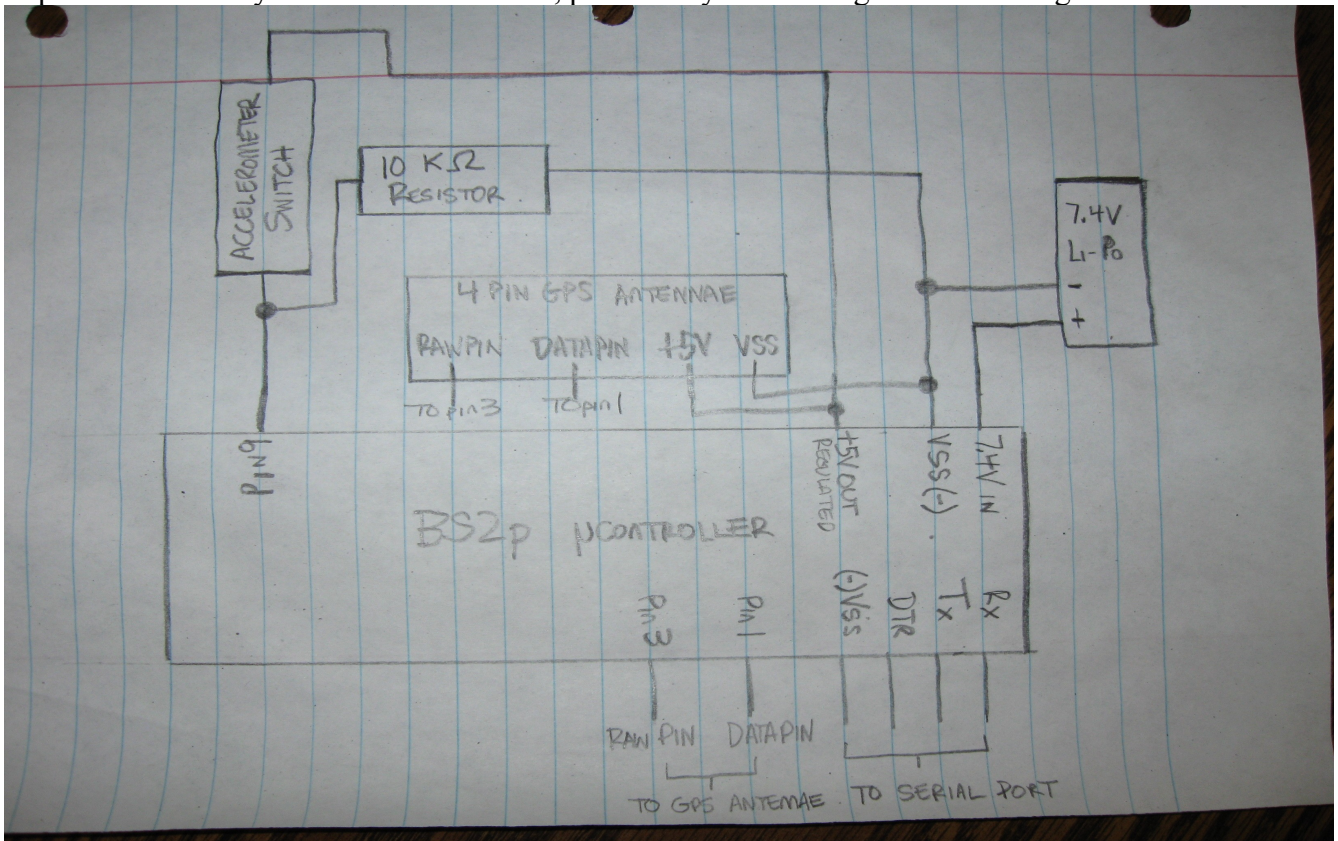 ACCELEROMETER
SWITCH
10 KΩ
RESISTOR.
7.4V
Li-Po
-
+
4 PIN GPS ANTENNAE
RAWPIN DATAPIN +5V VSS
TO pin3 TO pin1
PIN9
+5V OUT
REGULATED
VSS(-)
7.4V IN
BS2p µCONTROLLER
Pin3
Pin1
(-)Vss
DTR
Tx
Rx
RAW PIN DATAPIN
TO GPS ANTENAE TO SERIAL PORT